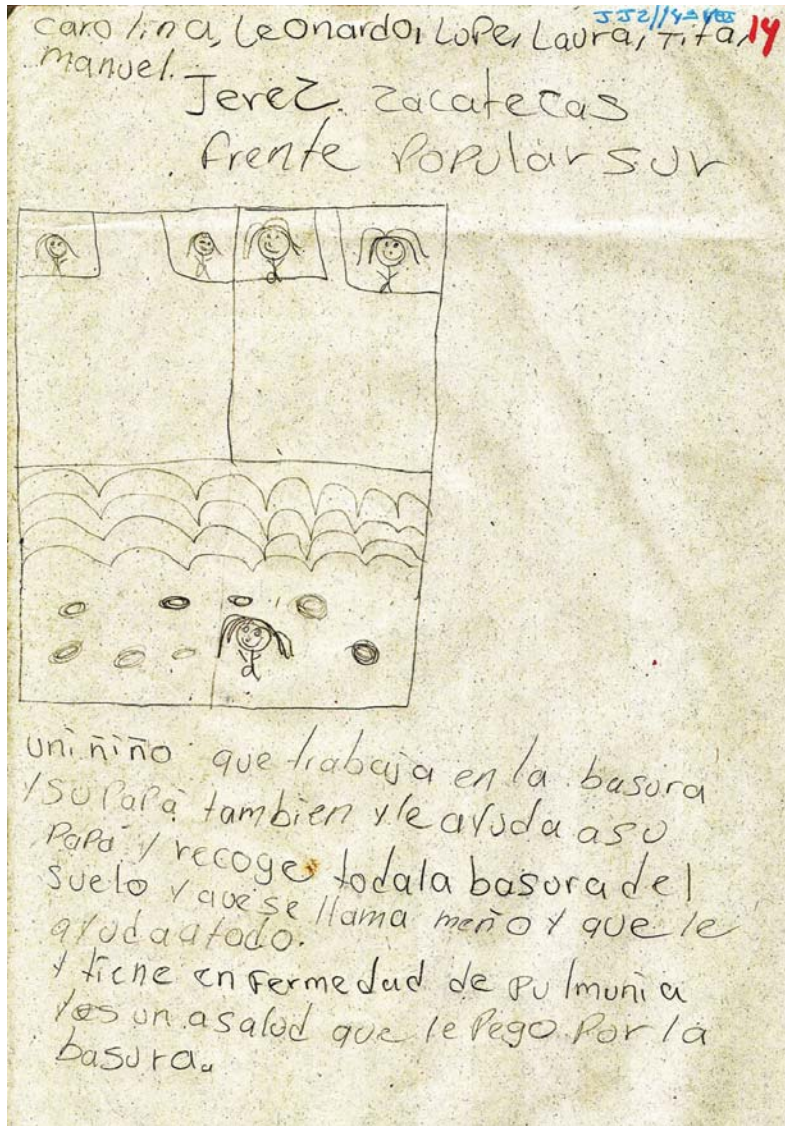 JJ2//14=VES
14
carolina, Leonardo, Lupe, Laura, Tita,
manuel.
Jerez. zacatecas
frente Popular sur
uni niño que trabaja en la basura
y su Papá tambien y le ayuda a su
Papá y recoge toda la basura del
suelo y que se llama meño y que le
ayuda a todo.
y tiene enfermedad de pulmunia
y es un a salud que le Pego Por la
basura.